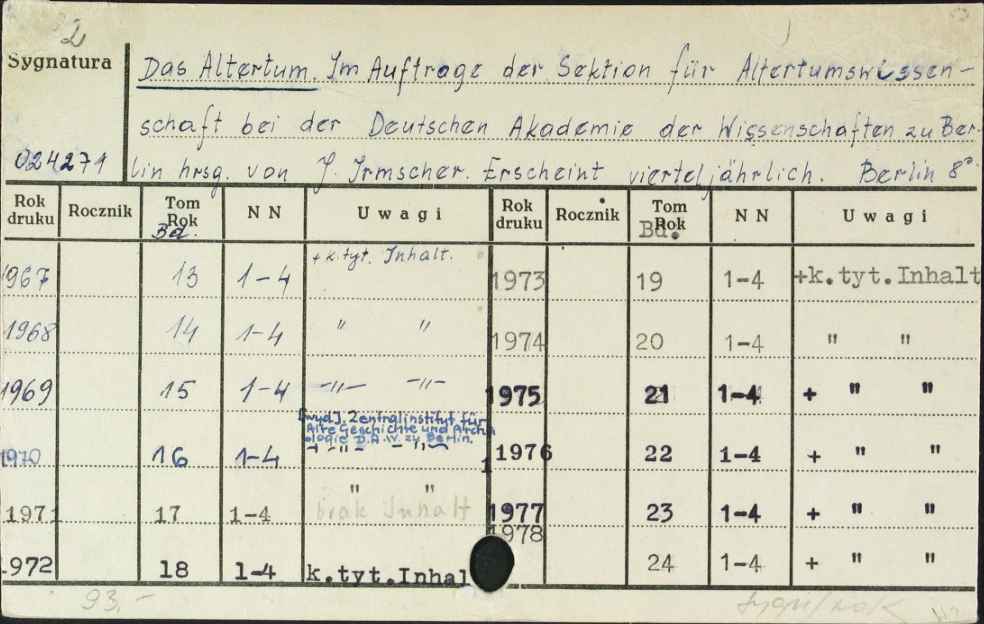 2
Sygnatura
Das Altertum. Im Auftrage der Sektion für Altertumswissen-
schaft bei der Deutschen Akademie der Wissenschaften zu Ber-
024271 lin hrsg. von J. Irmscher. Erscheint vierteljährlich. Berlin 8°
Rok druku Rocznik Tom Rok Bd. NN Uwagi Rok druku Rocznik Tom Rok Bd. NN Uwagi
1967 13 1-4 + k.tyt. Inhalt. 1973 19 1-4 +k.tyt.Inhalt
1968 14 1-4 " " 1974 20 1-4 " "
1969 15 1-4 -"- -"- 1975 21 1-4 + " "
[wyd]. Zentralinstitut für
Alte Geschichte und Archä
ologie D.A.W. zu Berlin.
1970 16 1-4 -+-"- -"- 1976 22 1-4 + " "
1971 17 1-4 " " brak Inhalt 1977 23 1-4 + " "
1972 18 1-4 k.tyt.Inhal 1978 24 1-4 + " "
93.-